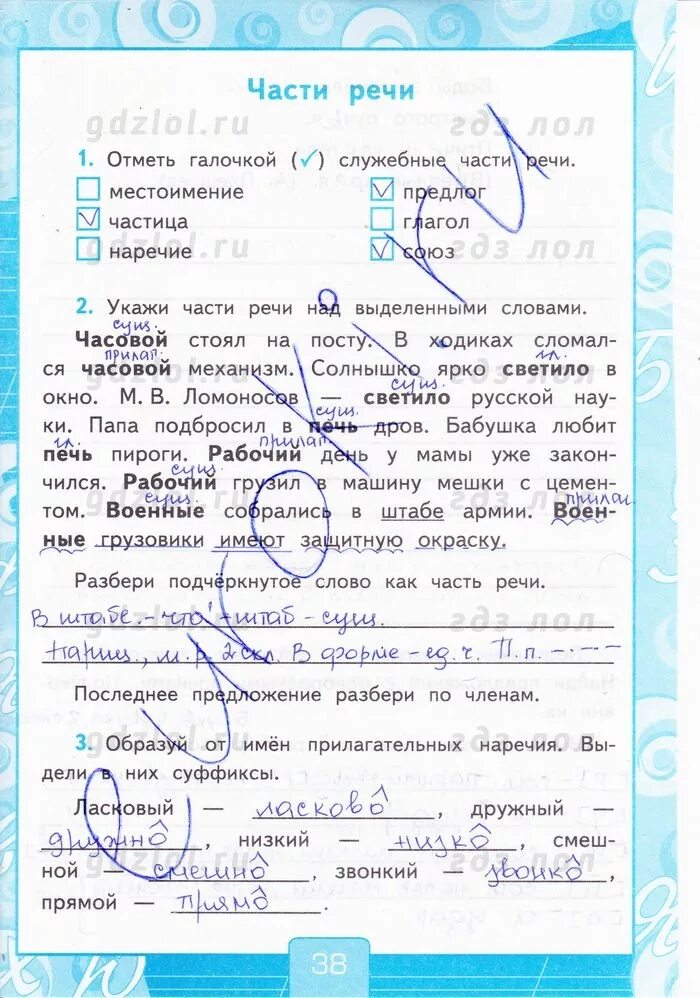 Части речи
gdzlol.ru гдз лол
1. Отметь галочкой (✓) служебные части речи.
местоимение ✓ предлог
✓ частица глагол
gdzlol.ru гдз лол
наречие ✓ союз
2. Укажи части речи над выделенными словами.
сущ.
Часовой стоял на посту. В ходиках сломал-
прилаг. гл.
ся часовой механизм. Солнышко ярко светило в
сущ.
окно. М. В. Ломоносов — светило русской нау-
сущ.
ки. Папа подбросил в печь дров. Бабушка любит
гл. прилаг.
печь пироги. Рабочий день у мамы уже закон-
сущ.
чился. Рабочий грузил в машину мешки с цемен-
сущ. прилаг.
том. Военные собрались в штабе армии. Воен-
ные грузовики имеют защитную окраску.
Разбери подчёркнутое слово как часть речи.
В штабе - что? - штаб - сущ.
нариц., м.р. 2 скл. В форме - ед. ч. П.п.
Последнее предложение разбери по членам.
3. Образуй от имён прилагательных наречия. Вы-
дели в них суффиксы.
Ласковый — ласково, дружный —
дружно, низкий — низко, смеш-
ной — смешно, звонкий — звонко,
прямой — прямо.
38